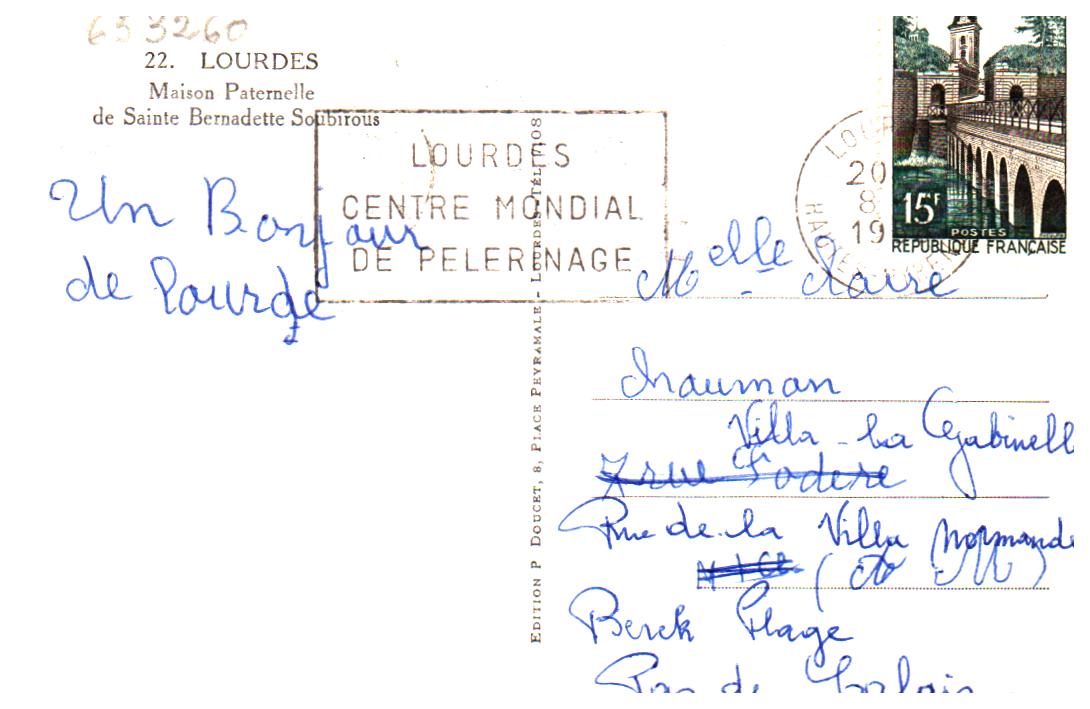 653260
22. LOURDES
Maison Paternelle
de Sainte Bernadette Soubirous
LOURDES
CENTRE MONDIAL
DE PELERINAGE
Un Bonjour
de Lourde
EDITION P DOUCET, 8, PLACE PEYRAMALE - LOURDES - TÉL. 7.08
LOUR
20
8
19
15F
POSTES
REPUBLIQUE FRANÇAISE
Melle Claire
Villa - La Gabinell
7 rue Fodere
Rue de la Villa Normande
NICE (A M)
Berck Plage
Pas de Calais